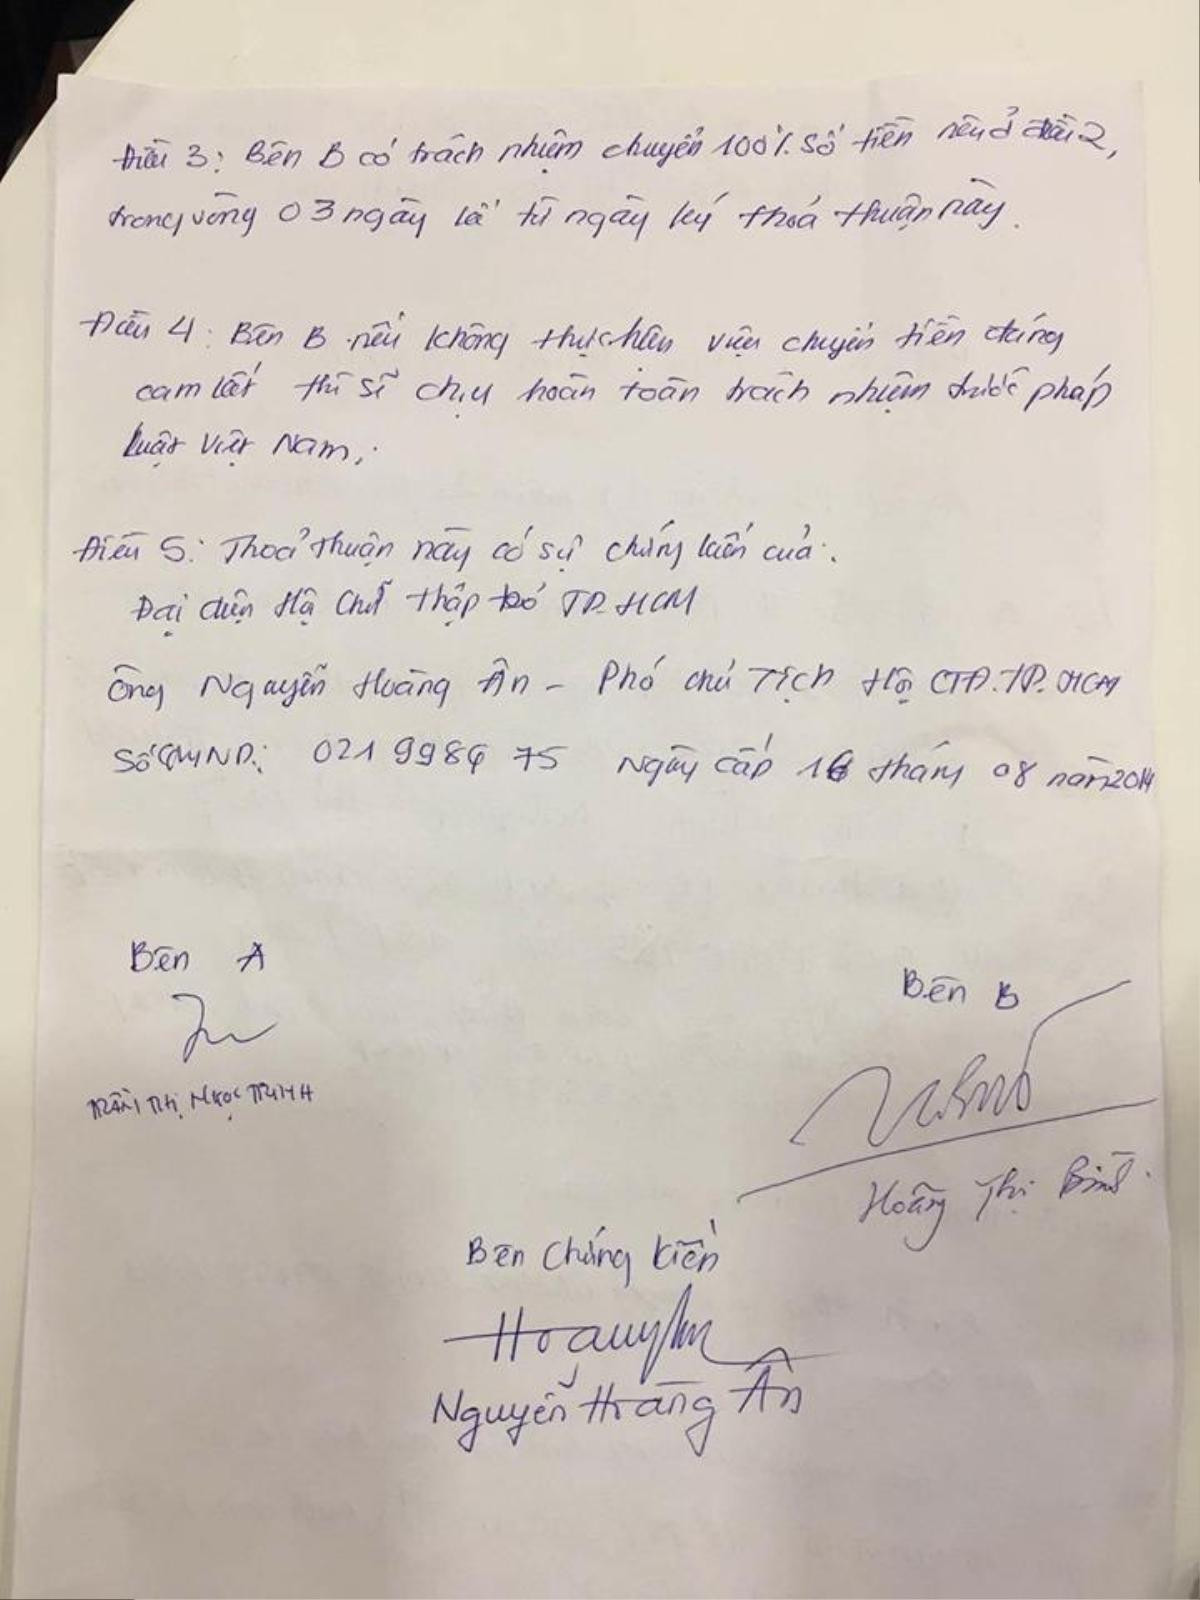 Điều 3: Bên B có trách nhiệm chuyển 100% số tiền nêu ở điều 2,
trong vòng 03 ngày kể từ ngày ký thoả thuận này.
Điều 4: Bên B nếu không thực hiện việc chuyển tiền đúng
cam kết thì sẽ chịu hoàn toàn trách nhiệm trước pháp
luật Việt Nam.
Điều 5: Thoả thuận này có sự chứng kiến của:
Đại diện Hội Chữ thập đỏ TP.HCM
Ông Nguyễn Hoàng Ân - Phó chủ Tịch Hội CTĐ.TP.HCM
Số CMND: 021998475 Ngày cấp 16 tháng 08 năm 2014
Bên A
TRẦN THỊ NGỌC TRINH
Bên B
Hoàng Thị
Bên Chứng kiến
Nguyễn Hoàng Ân